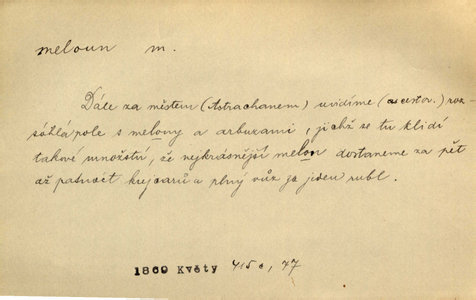 meloun m.
Dále za městem (Astrachanem) uvidíme (a cestov.) roz
sáhlá pole s melony a arbuzami, jichž se tu klidí
takové množství, že nejkrásnější melon dostaneme za pět
až patnáct krejcarů a plný vůz za jeden rubl.
1869 Květy 415 c, 77